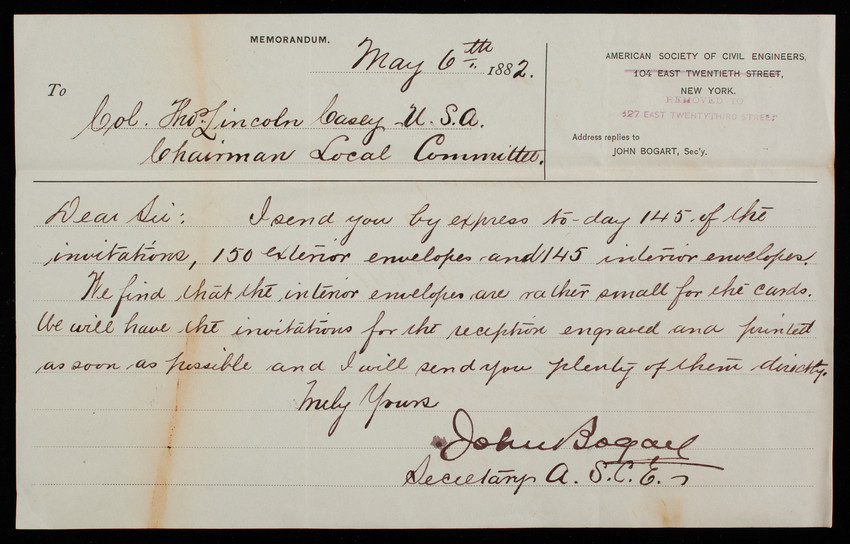 MEMORANDUM.
May 6th 1882.
AMERICAN SOCIETY OF CIVIL ENGINEERS,
104 EAST TWENTIETH STREET,
NEW YORK.
REMOVED TO
127 EAST TWENTYTHIRD STREET
Address replies to
JOHN BOGART, Sec'y.
To
Col. Thos. Lincoln Casey U.S.A.
Chairman Local Committee.
Dear Sir: I send you by express to-day 145 of the
invitations, 150 exterior envelopes and 145 interior envelopes.
We find that the interior envelopes are rather small for the cards.
We will have the invitations for the reception engraved and printed
as soon as possible and I will send you plenty of them directly.
Truly Yours
John Bogart
Secretary A.S.C.E.